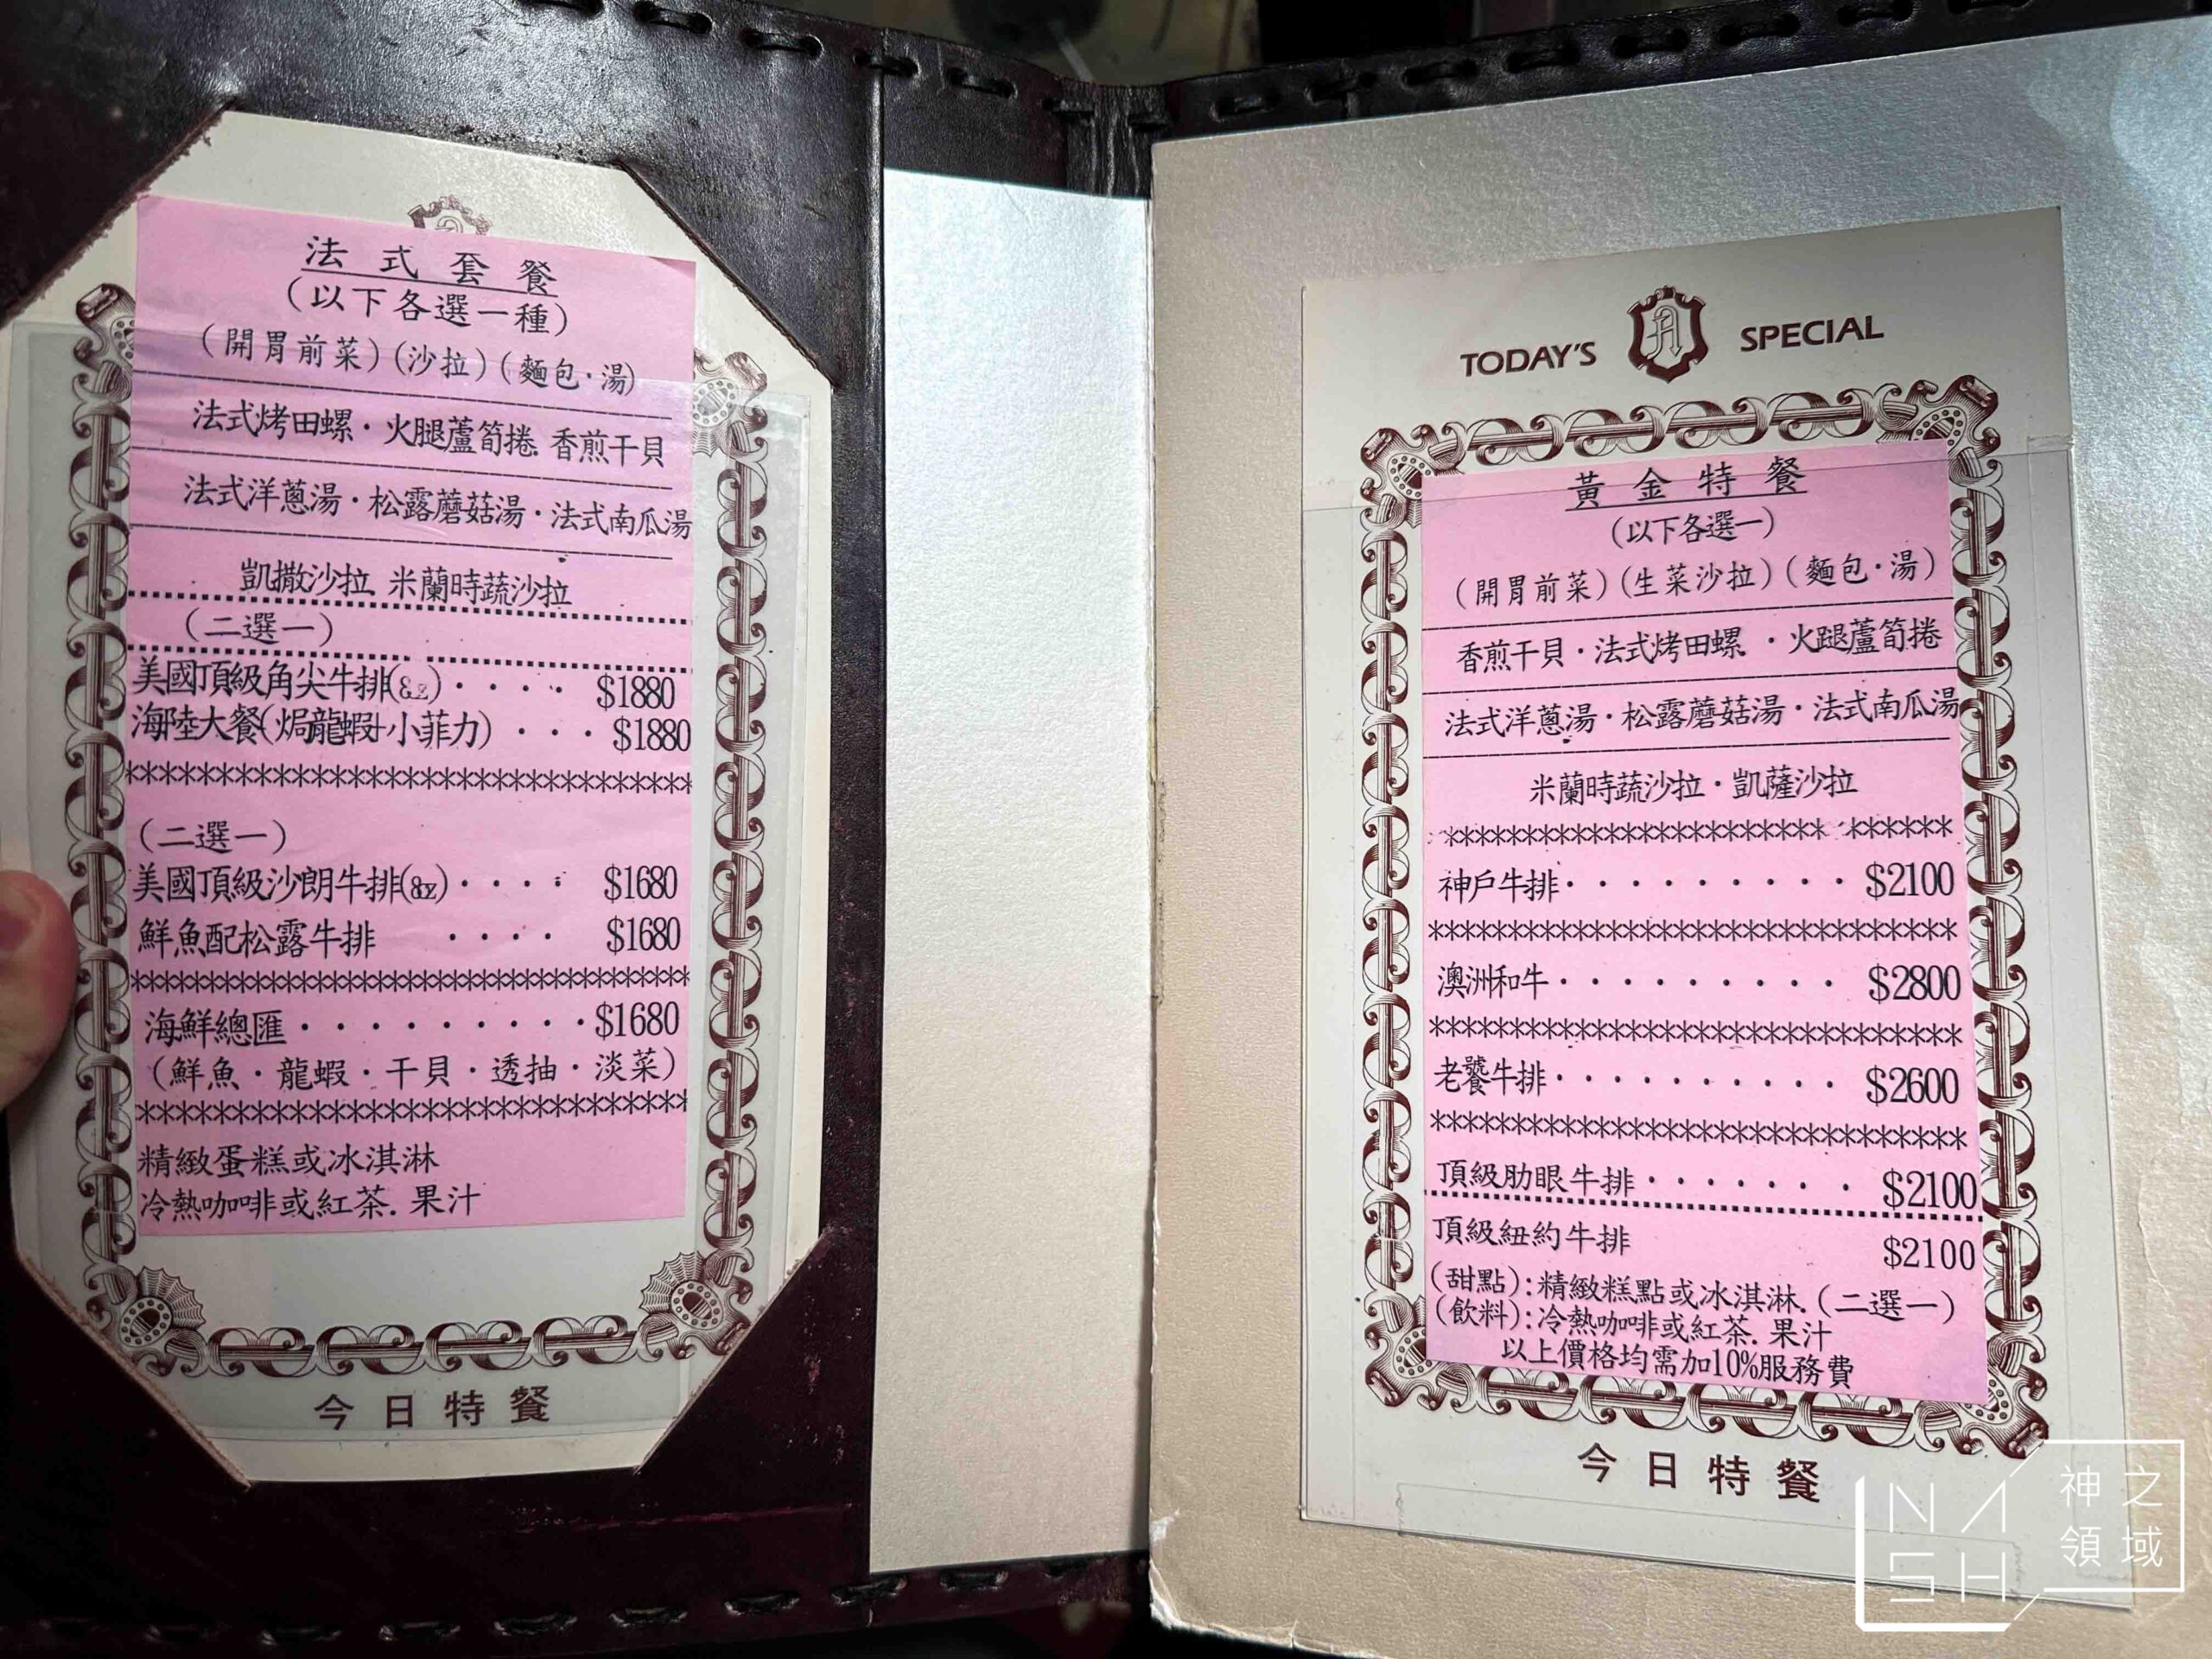 法式套餐
(以下各選一種)
(開胃前菜)(沙拉)(麵包·湯)
法式烤田螺·火腿蘆筍捲.香煎干貝
法式洋蔥湯·松露蘑菇湯·法式南瓜湯
凱撒沙拉.米蘭時蔬沙拉
(二選一)
美國頂級角尖牛排(8oz)····$1880
海陸大餐(焗龍蝦+小菲力)···$1880
******************************
(二選一)
美國頂級沙朗牛排(8oz)····$1680
鮮魚配松露牛排 ····$1680
******************************
海鮮總匯··········$1680
(鮮魚·龍蝦·干貝·透抽·淡菜)
******************************
精緻蛋糕或冰淇淋
冷熱咖啡或紅茶.果汁
今日特餐
TODAY'S A SPECIAL
黃金特餐
(以下各選一)
(開胃前菜)(生菜沙拉)(麵包·湯)
香煎干貝·法式烤田螺.·火腿蘆筍捲
法式洋蔥湯·松露蘑菇湯·法式南瓜湯
米蘭時蔬沙拉·凱薩沙拉
******************************
神戶牛排··········$2100
******************************
澳洲和牛·········$2800
******************************
老饕牛排··········$2600
******************************
頂級肋眼牛排·······$2100
頂級紐約牛排 $2100
(甜點):精緻糕點或冰淇淋.(二選一)
(飲料):冷熱咖啡或紅茶.果汁
以上價格均需加10%服務費
今日特餐
NASH
神之領域